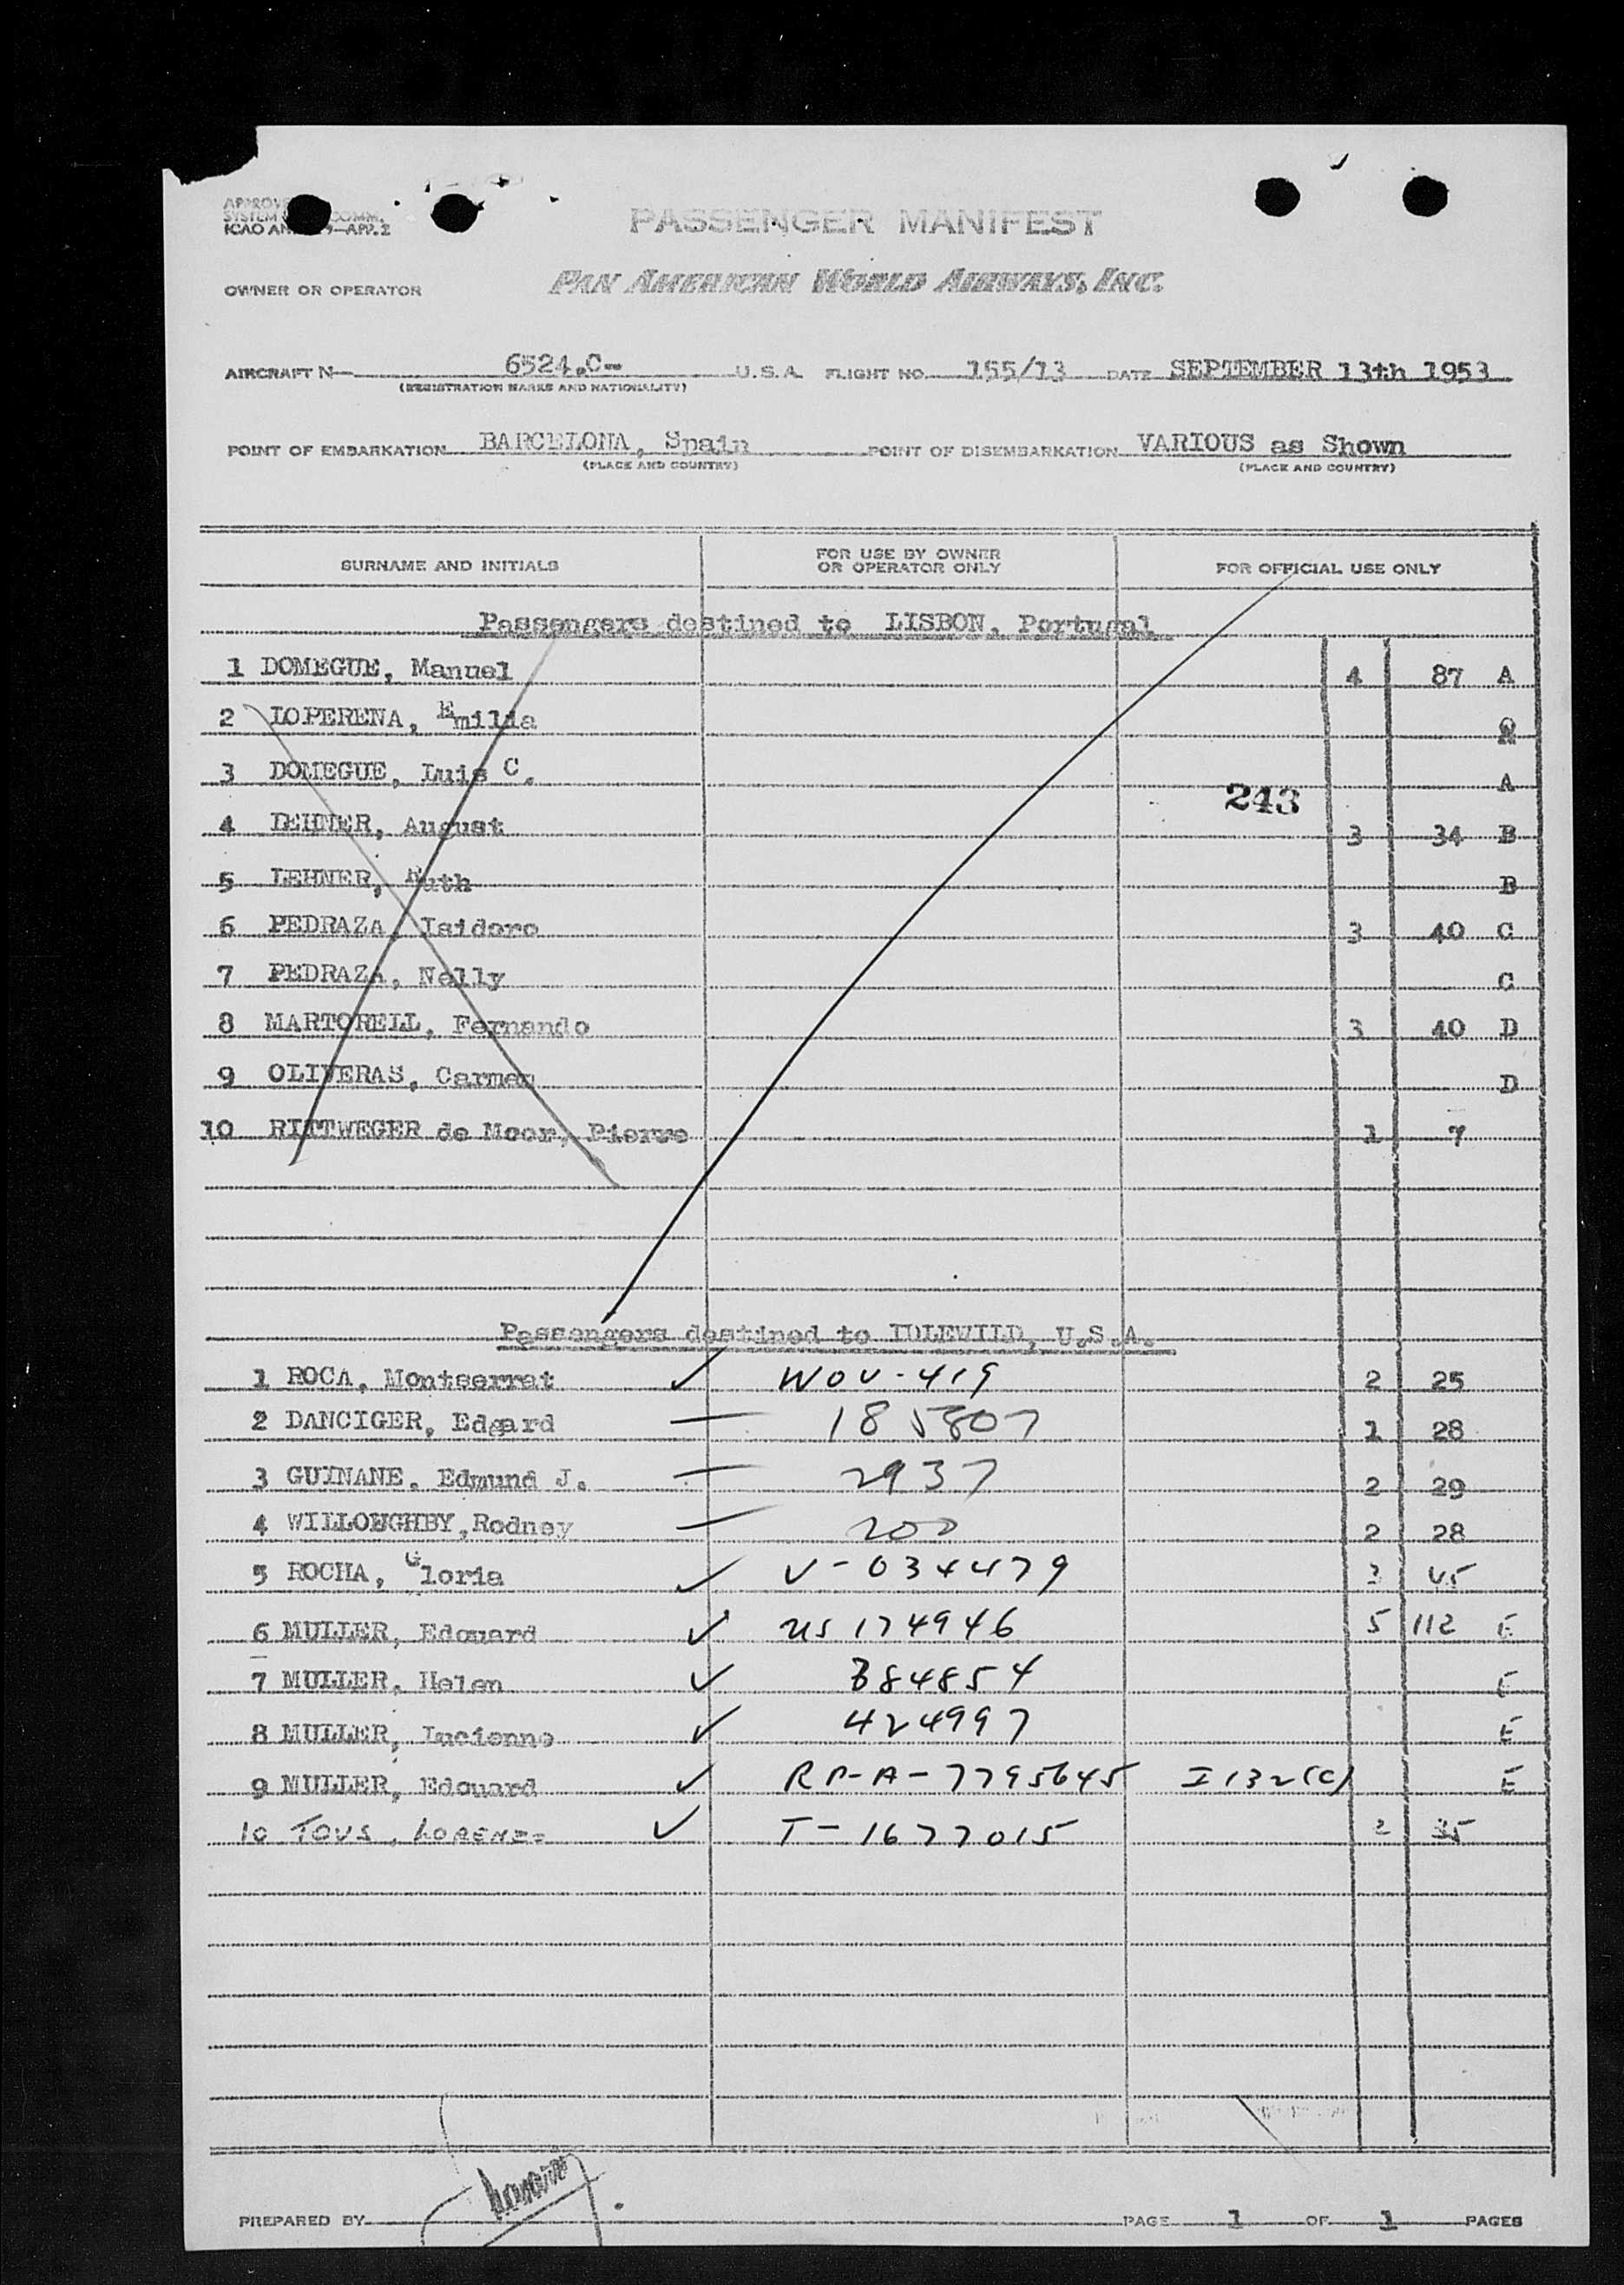 PASSENGER MANIFEST
OWNER OR OPERATOR PAN AMERICAN WORLD AIRWAYS, INC.
AIRCRAFT N— 6524.C- U.S.A. FLIGHT NO. 155/13 DATE SEPTEMBER 13th 1953
(REGISTRATION MARKS AND NATIONALITY)
POINT OF EMBARKATION BARCELONA, Spain POINT OF DISEMBARKATION VARIOUS as Shown
(PLACE AND COUNTRY) (PLACE AND COUNTRY)
SURNAME AND INITIALS FOR USE BY OWNER OR OPERATOR ONLY FOR OFFICIAL USE ONLY
Passengers destined to LISBON, Portugal
1 DOMEGUE, Manuel 4 87 A
2 LOPERENA, Emilia
3 DOMEGUE, Luis C. A
243
4 LEHNER, August 3 34 B
5 LEHNER, Ruth B
6 PEDRAZA, Isidoro 3 40 C
7 PEDRAZA, Nelly C
8 MARTORELL, Fernando 3 40 D
9 OLIVERAS, Carmen D
10 RITTWEGER de Moor, Pierre 1 7
Passengers destined to IDLEWILD, U.S.A.
1 ROCA, Montserrat ✓ WOV-419 2 25
2 DANCIGER, Edgard — 185807 1 28
3 GUINANE, Edmund J. — 2937 2 29
4 WILLOUGHBY, Rodney — 200 2 28
5 ROCHA, Gloria ✓ V-034479 45
6 MULLER, Edouard ✓ US 174946 5 112 E
7 MULLER, Helen ✓ 384854 E
8 MULLER, Lucienne ✓ 424997 E
9 MULLER, Edouard ✓ RP-A-7795645 I 132(C) E
10 TOUS, LORENZO ✓ T-1677015 2 35
PREPARED BY PAGE 1 OF 1 PAGES